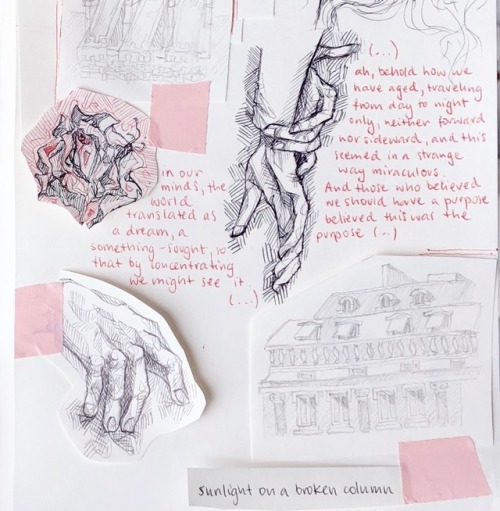 (...)
ah, behold how we
have aged, traveling
from day to night
only, neither forward
nor sideward, and this
seemed in a strange
way miraculous.
And those who believed
we should have a purpose
believed this was the
purpose (...)
in our
minds, the
world
translated as
a dream, a
something-sought, so
that by concentrating
we might see it.
(...)
sunlight on a broken column